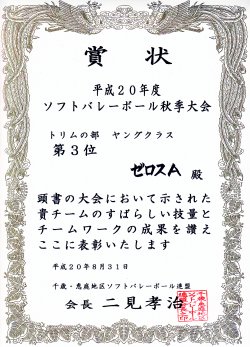 賞状
平成２０年度
ソフトバレーボール秋季大会
トリムの部　ヤングクラス
第３位
ゼロスA 殿
頭書の大会において示された
貴チームのすばらしい技量と
チームワークの成果を讃え
ここに表彰いたします
平成２０年８月３１日
千歳・恵庭地区ソフトバレーボール連盟
会長 二見孝治